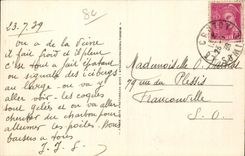 86
23.7.39
on a de la veine
il fait froid et il pleut
c'est tout a fait épatant
on signale des icebergs
au large. on va y
aller voir. les coqs
sont salés et on va aller
chercher du charbon pour
allumer les poêles. Nous
baisers a tous
Mademoiselle O.
79 rue du Plessis
Franconville
S. O.